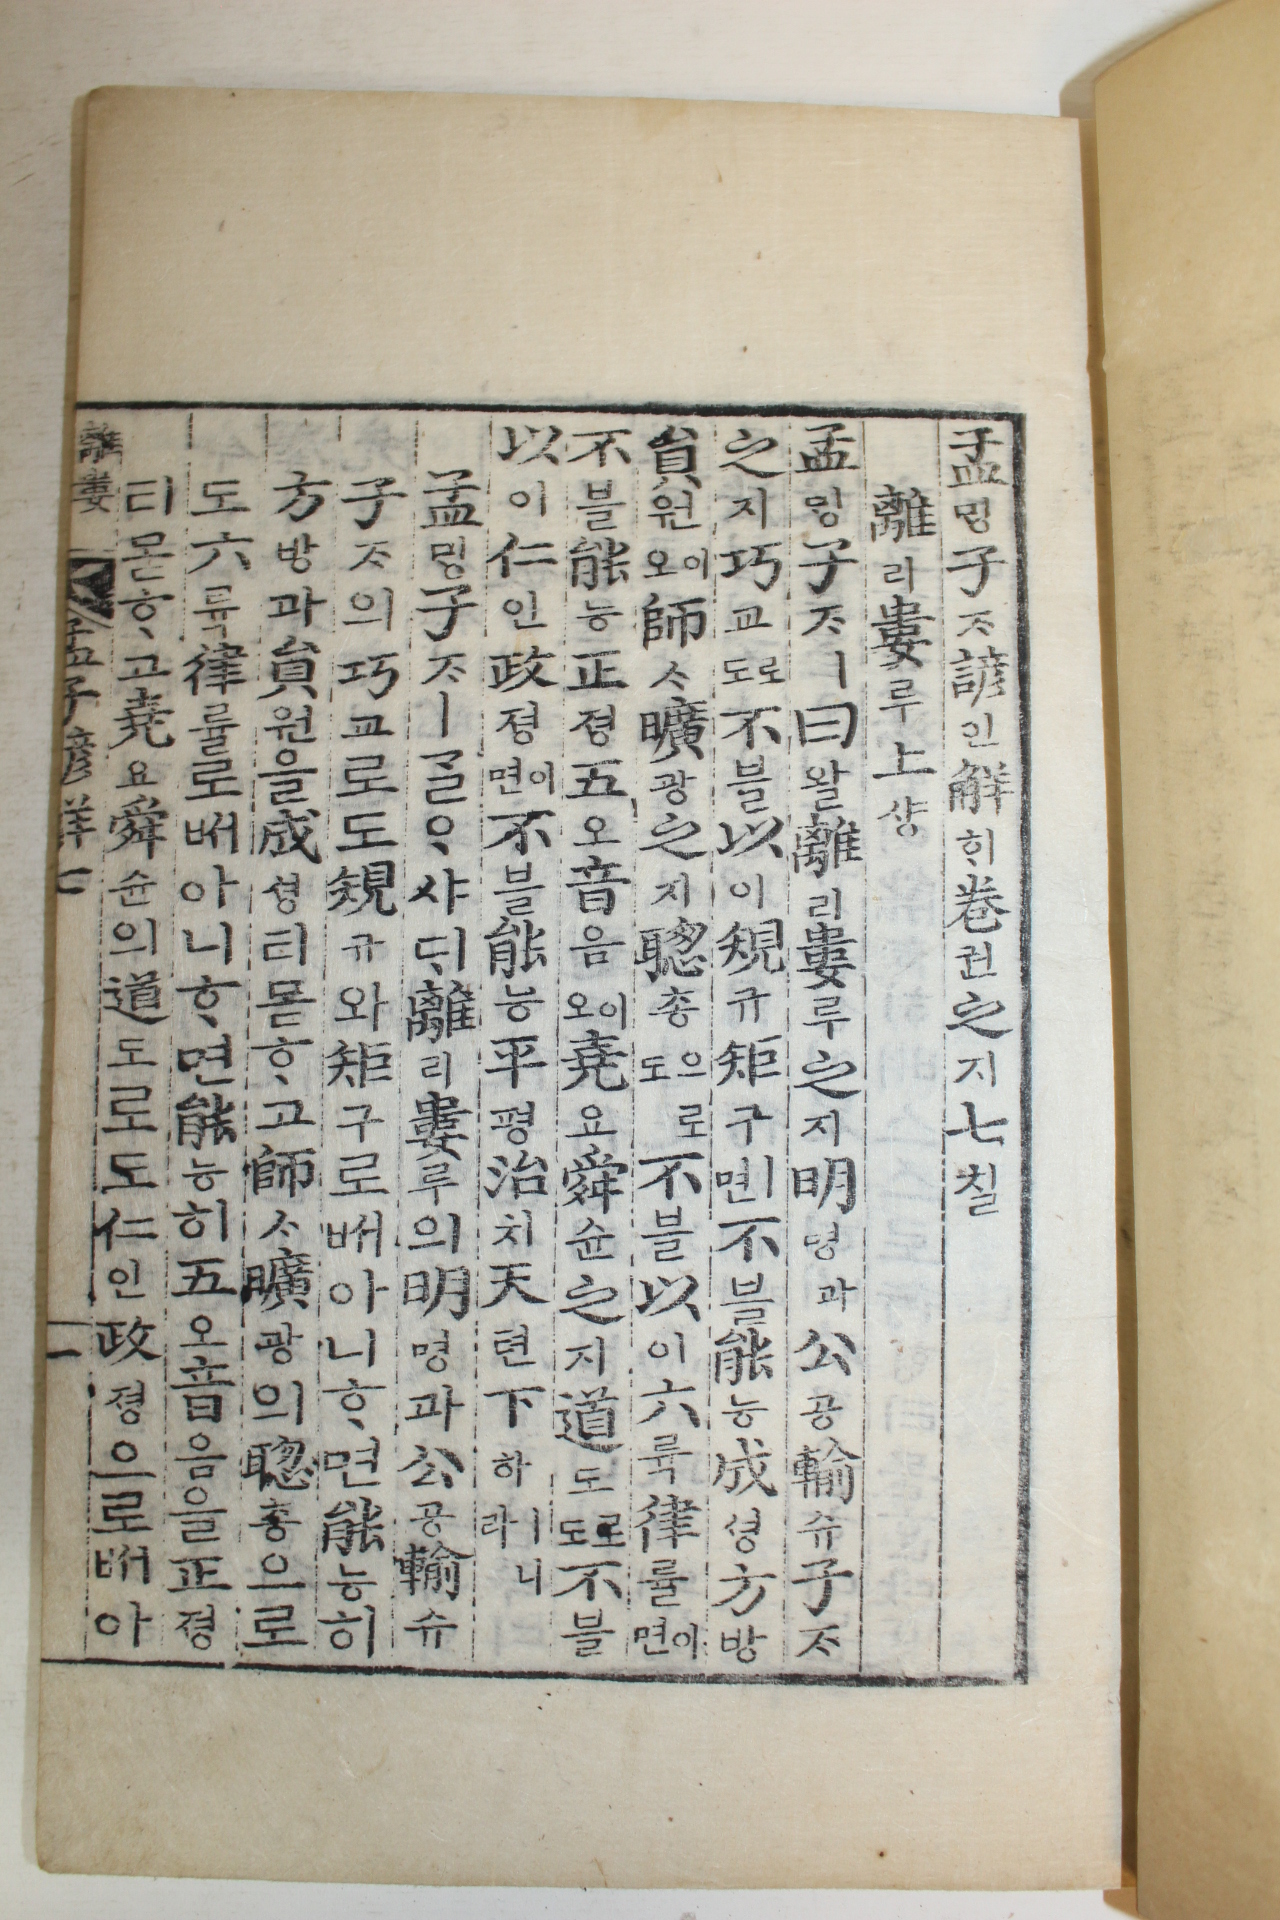 孟밍子ᄌᆞ諺인解ᄒᆡ卷권之지七칠
離리婁루上샹
孟밍子ᄌᆞㅣ曰왈離리婁루之지明명과公공輸슈子ᄌᆞ
之지巧교로도不블以이規규矩구ㅣ면不블能능成셩方방
員원이오師ᄉᆞ曠광之지聰총으로도不블以이六륙律률이면
不블能능正졍五오音음이오堯요舜슌之지道도로도不블
以이仁인政졍이면不블能능平평治치天텬下하ㅣ니라
孟밍子ᄌᆞㅣᄀᆞᆯᄋᆞ샤ᄃᆡ離리婁루의明명과公공輸슈
子ᄌᆞ의巧교로도規규와矩구로ᄡᅥ아니ᄒᆞ면能능히
方방과員원을成셩티몯ᄒᆞ고師ᄉᆞ曠광의聰총으로
도六륙律률로ᄡᅥ아니ᄒᆞ면能능히五오音음을正졍
티몯ᄒᆞ고堯요舜슌의道도로도仁인政졍으로ᄡᅥ아
離婁 孟子諺解七 一